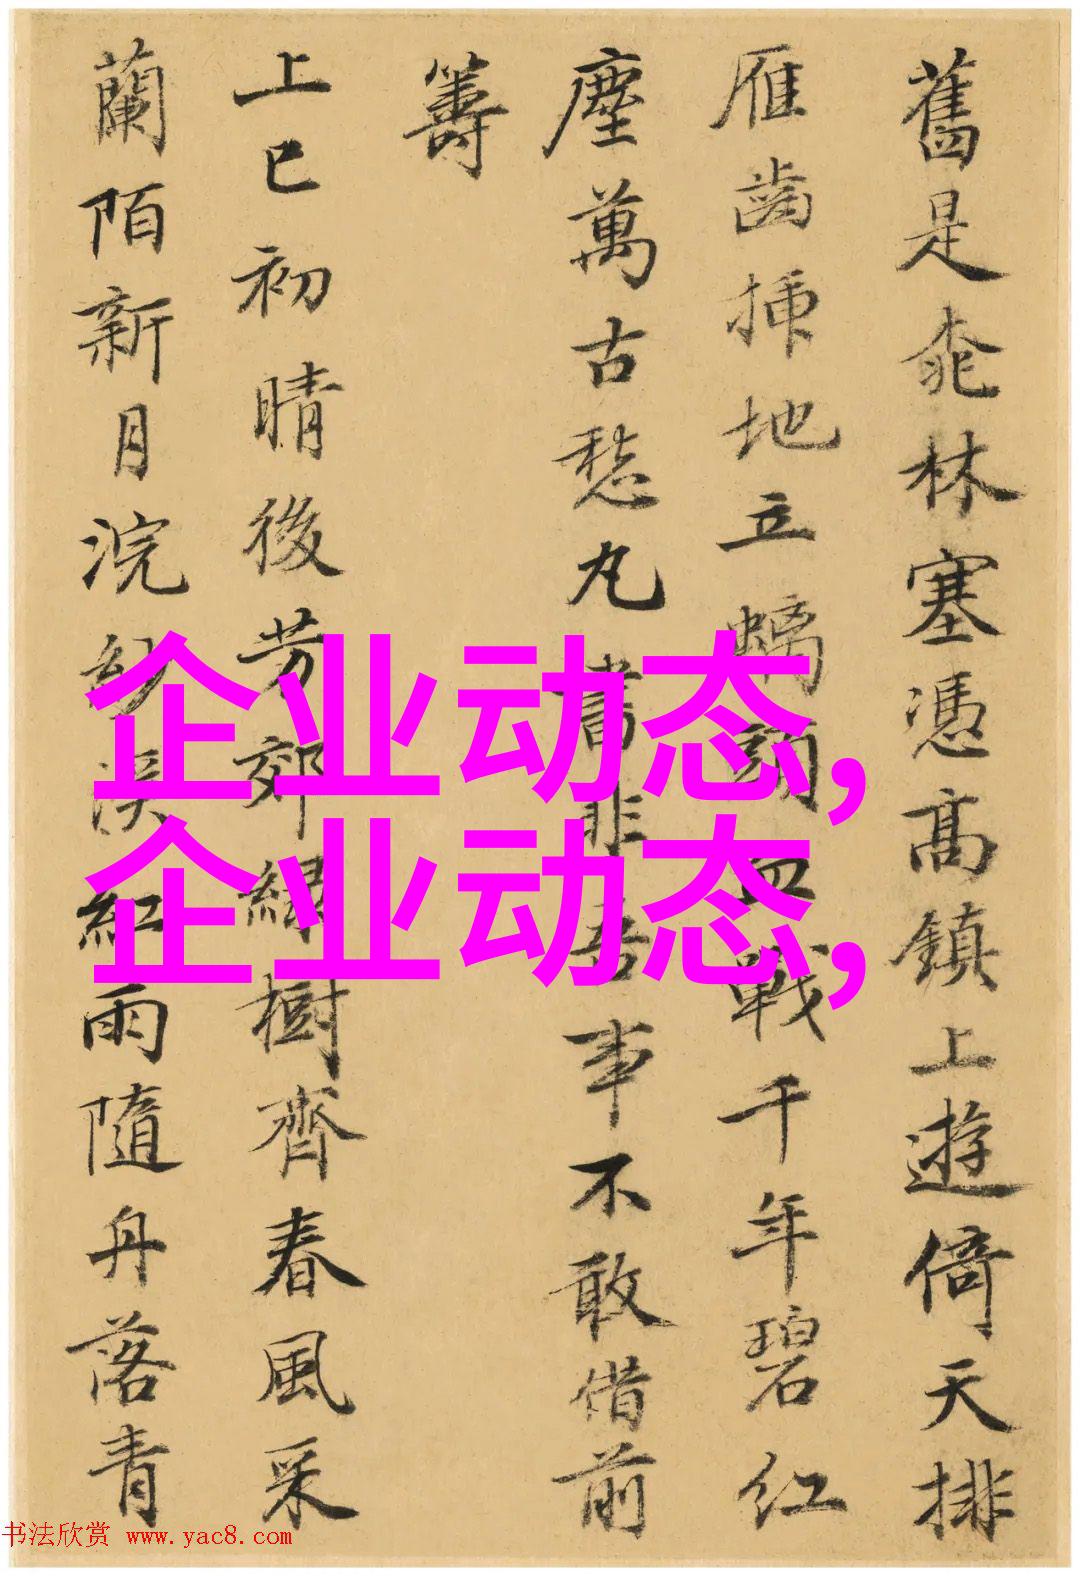 舊是桃林塞憑高鎮上遊倚天排
雁齒插地立螭頭血戰千年碧紅
塵萬古愁丸書非吾事不敢借前
籌
上巳初晴後芳郊綠樹齊春風采
蘭陌新月浣紗溪紅雨隨舟落青
企业动态,
企业动态,
书法欣赏 www.yac8.com